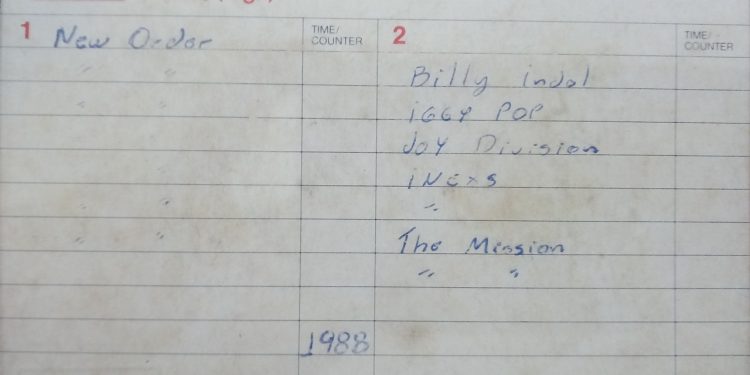 1 New Order
TIME/
COUNTER
" "
" "
"
" "
" "
1988
2
TIME/
COUNTER
Billy indol
iGGY POP
JoY Division
iNexs
"
The Mission
" "